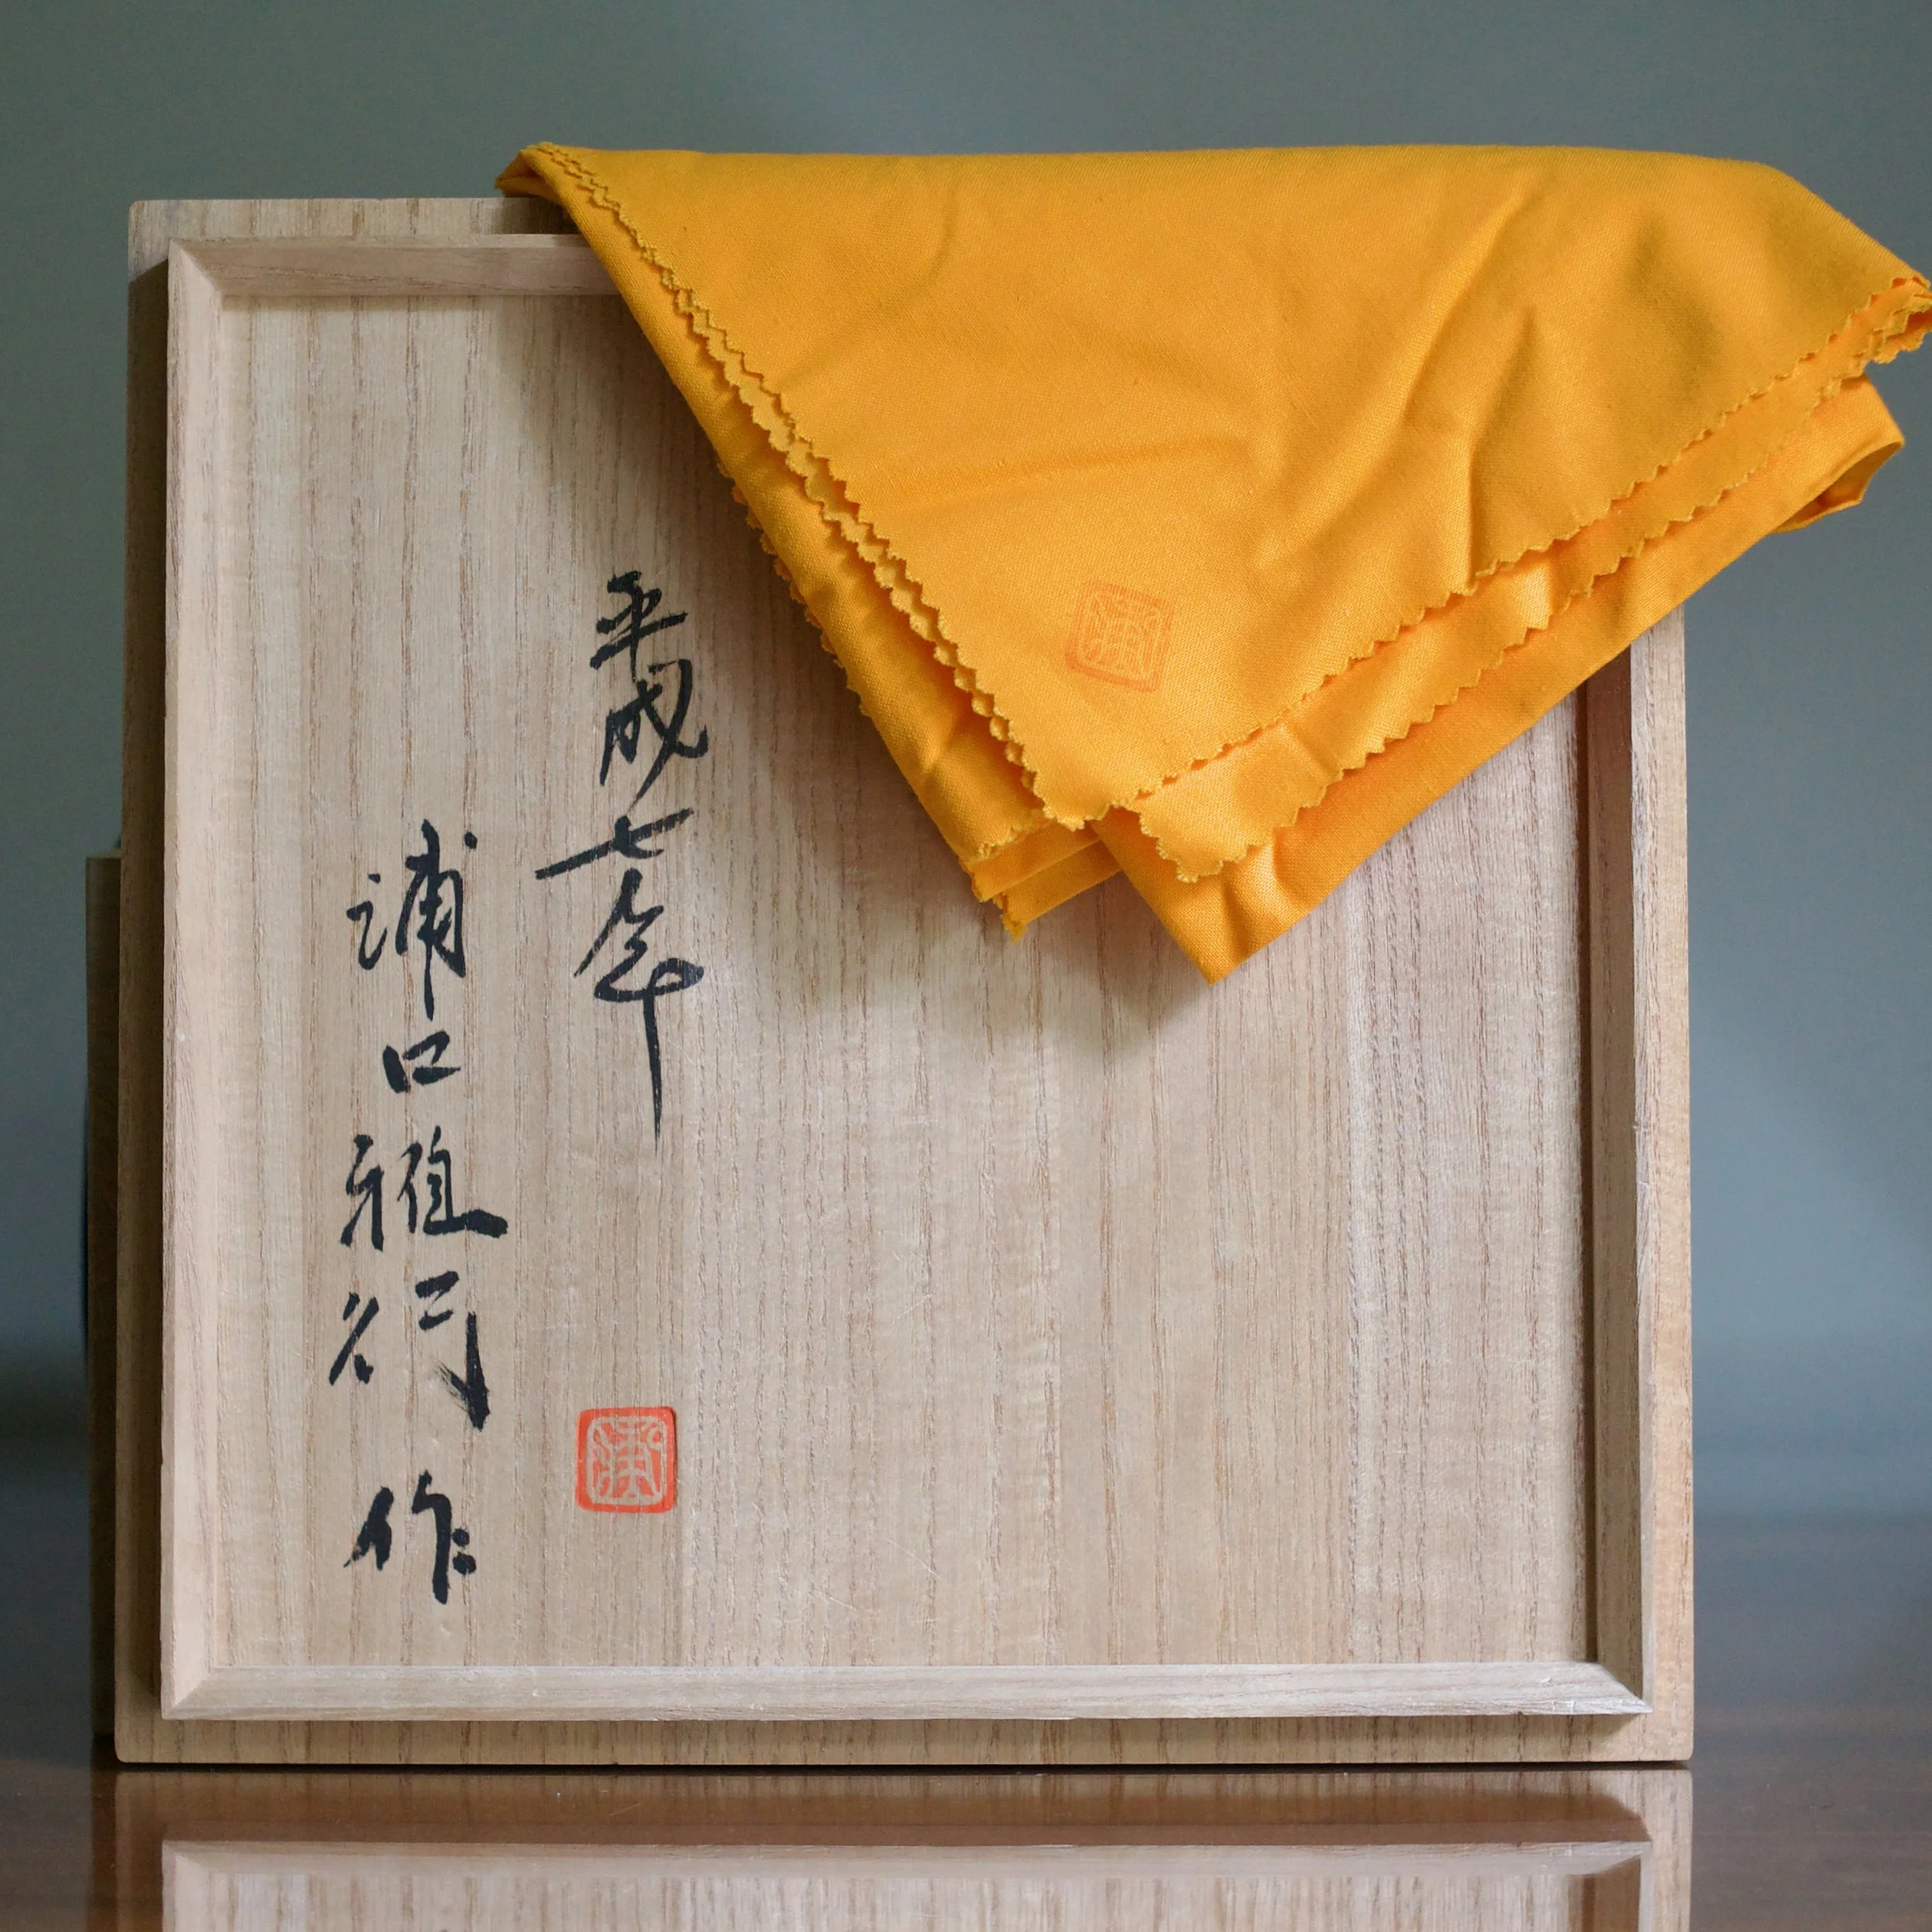 平成七年
浦口雅行 作
浦
浦